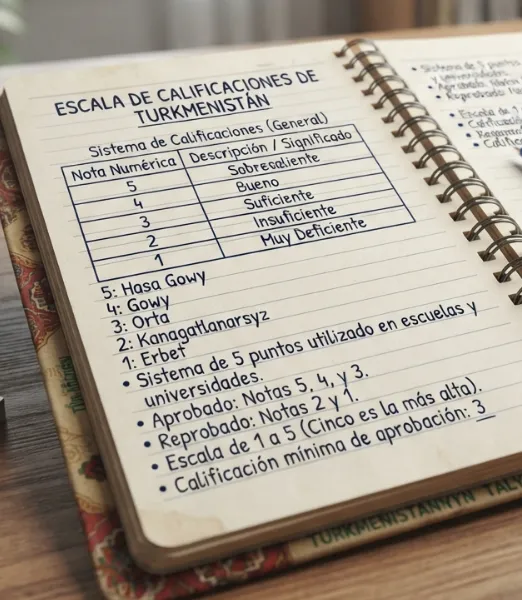 ESCALA DE CALIFICACIONES DE
TURKMENISTÁN
Sistema de Calificaciones (General)
Nota Numérica Descripción / Significado
5 Sobresaliente
4 Bueno
3 Suficiente
2 Insuficiente
1 Muy Deficiente
5: Hasa Gowy
4: Gowy
3: Orta
2: Kanagatlanarsyz
1: Erbet
• Sistema de 5 puntos utilizado en escuelas y
universidades.
• Aprobado: Notas 5, 4, y 3.
• Reprobado: Notas 2 y 1.
• Escala de 1 a 5 (Cinco es la más alta).
• Calificación mínima de aprobación: 3
• Sistema de 5 puntos
y universidades.
• Escala de 1
TÜRKMENISTANNYN